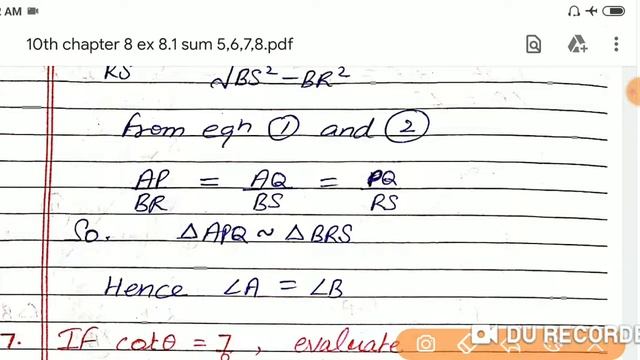 AM
10th chapter 8 ex 8.1 sum 5,6,7,8.pdf
RS √BS² – BR²
from eqn ① and ②
AP/BR = AQ/BS = PQ/RS
So. △APQ ~ △BRS
Hence ∠A = ∠B
7. If cotθ = 7/8, evaluate
DU RECORDE